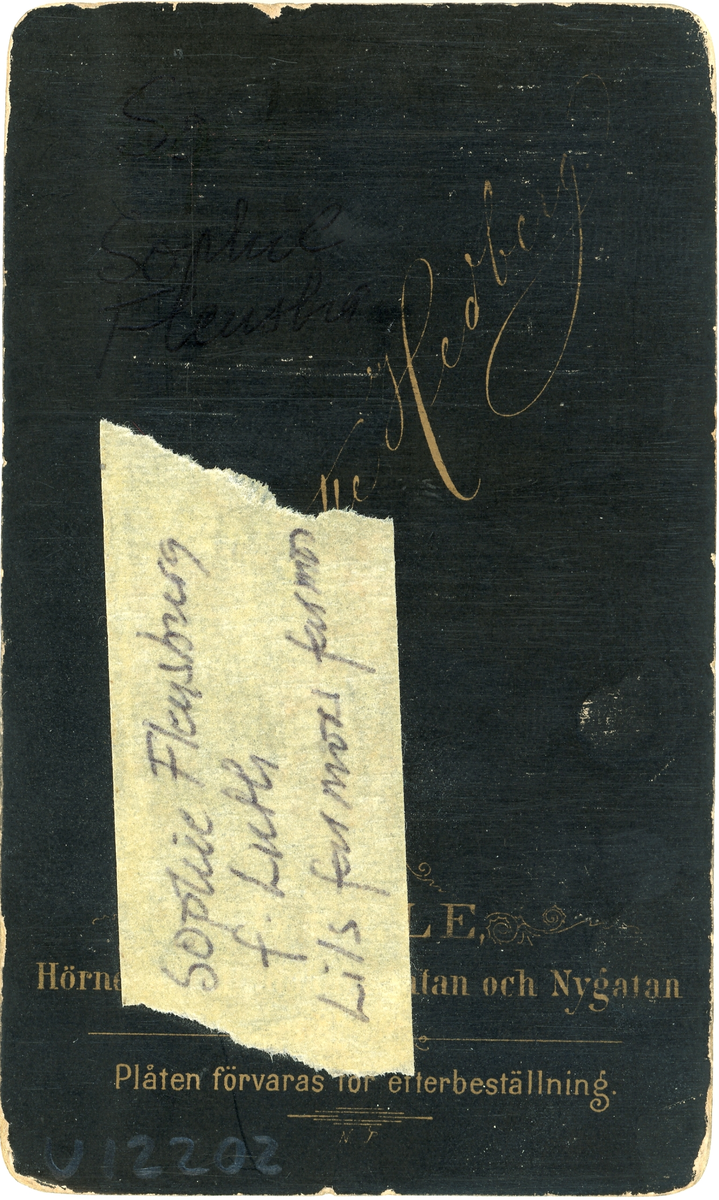 Sophie
Flensburg
Hedberg
Sophie Flensburg
f. Luth
Lils farmors farmor
LE,
Hörne
atan och Nygatan
Plåten förvaras för efterbeställning.
N. F.
U12202